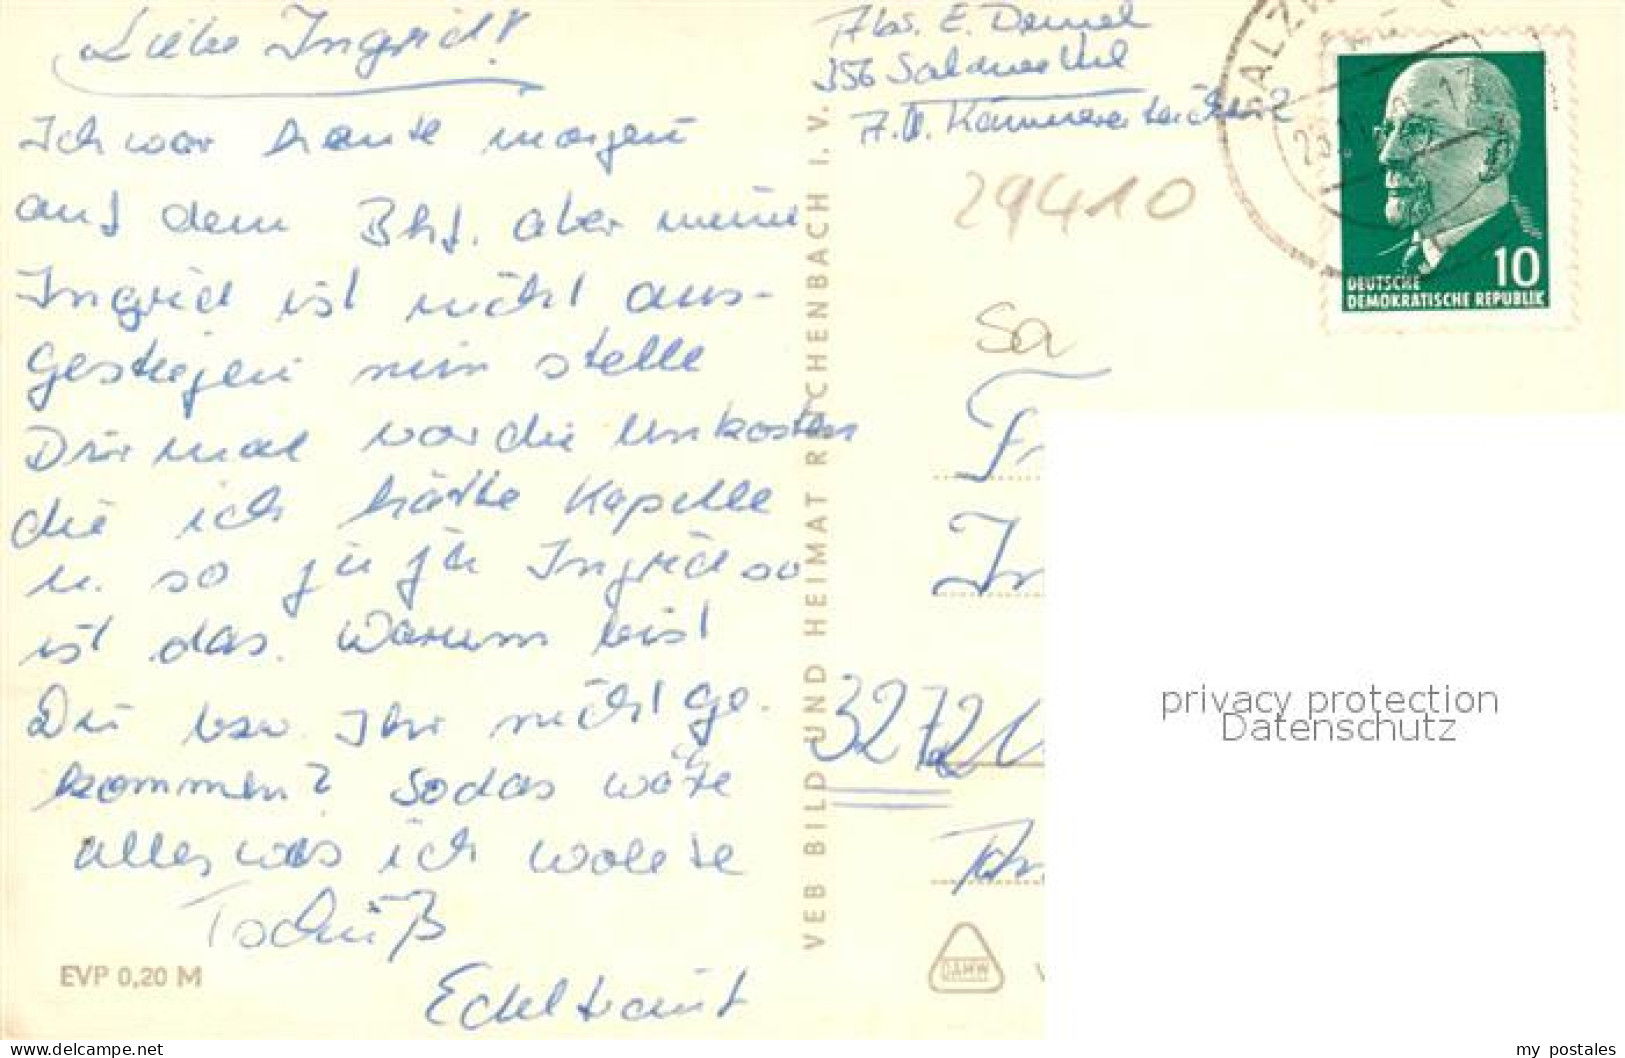 Liebe Ingrid!
Ich war heute morgen
auf dem Bhf. aber meine
Ingrid ist nicht aus-
gestiegen nun stelle
Dir mal vor die Unkosten
die ich hätte Kapelle
u. so ja ja Ingrid so
ist das. Warum bist
Du bzw. Ihr nicht ge-
kommen? Sodas wäre
alles was ich wollte
Tschüß
Edeltraut
EVP 0,20 M
VEB BILD UND HEIMAT REICHENBACH I. V.
Abs. E. Demel
356 Salzwedel
29410
Sa
Fr
In
32721
DAMW
SALZW
10
DEUTSCHE
DEMOKRATISCHE REPUBLIK
privacy protection
Datenschutz
www.delcampe.net
my_postales